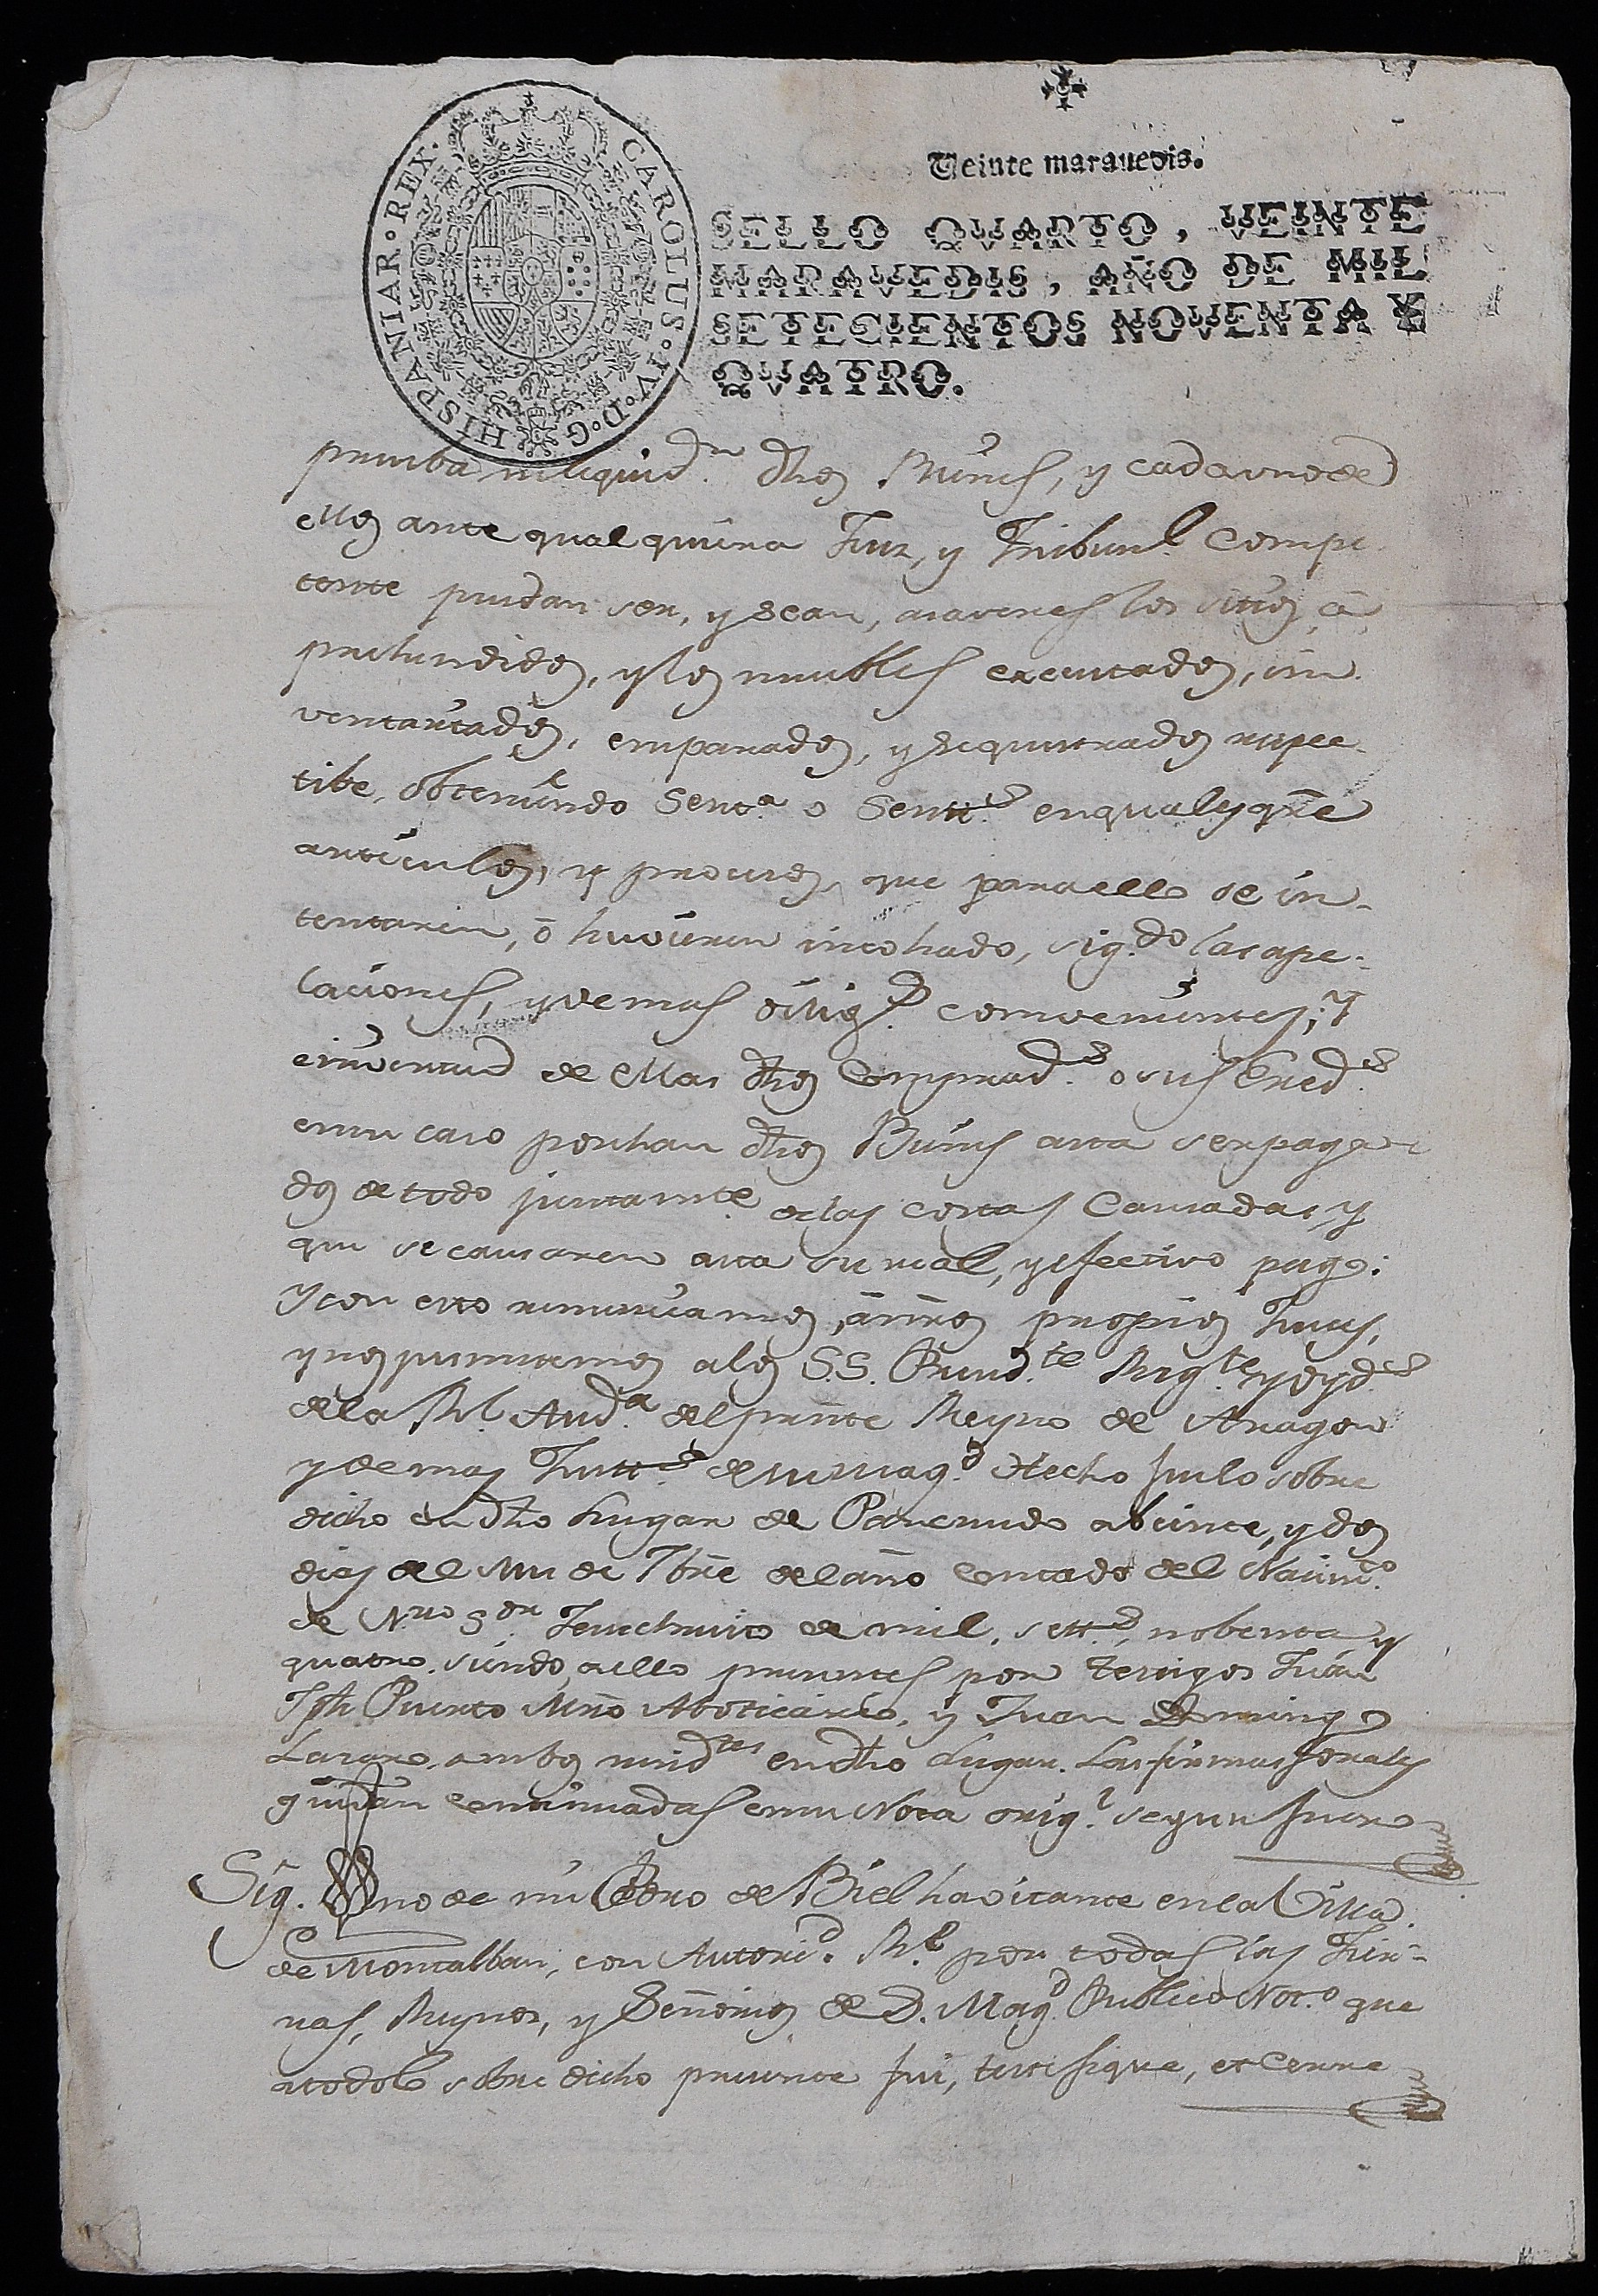 CAROLUS·IV·D·G·HISPANIAR·REX·
Veinte maravedis.
SELLO QVARTO, VEINTE
MARAVEDIS, AÑO DE MIL
SETECIENTOS NOVENTA Y
QVATRO.
prueba, ni liquidn. dhos Bienes, y cada uno de
ellos ante qualquiera Juez, y Tribunl. Compe-
tente puedan ser, y sean, a saver es los sitios, a
prehendidos, y los muebles executados, in-
ventariados, emparados, y sequestrados respec-
tibe, obteniendo Senta. o Sentts. en qualesqre
articulos, y procesos, que para ello se in-
tentaren, ó huvieren incohado, sigdo. las ape-
laciones, y demas diligs. combenientes; y
en virtud de ellas dhos Comprads. o sus Ereds.
en su caso posehan dhos Bienes asta ser paga-
dos de todo juntamte. de las costas Causadas, y
que se causaren asta su real, y efectivo pago:
y con esto renunciamos, á nros propios Jueces,
y nos jusmetemos a los S.S. Presidte. Regte. y oyds.
de la Rl. Auda. del preste Reyno de Aragon
y demas Justts. de su Magd. Hecho fue lo sobre
dicho en dho Lugar de Pancrudo a beinte, y dos
dias del mes de 7bre del año contado del Nacimto.
de Nro Sor. Jesuchristo de mil, setts., nobenta y
quatro. siendo a ello presentes por testigos Juan
Jph Puerto Mro Aboticario, y Juan Domingo
Lazaro, ambos residtes en dho Lugar. Las firmas forales
quedan continuadas en su Nota origl. segun fuero
Sig. no de mi Pedro de Biel havitante en la Villa
de Montalban, con Autorid. Rl. por todas las Tier-
ras, Reynos, y Señorios de S. Magd. Publico Noto. que
a todo lo sobre dicho presente fui, testifique, et Cerre